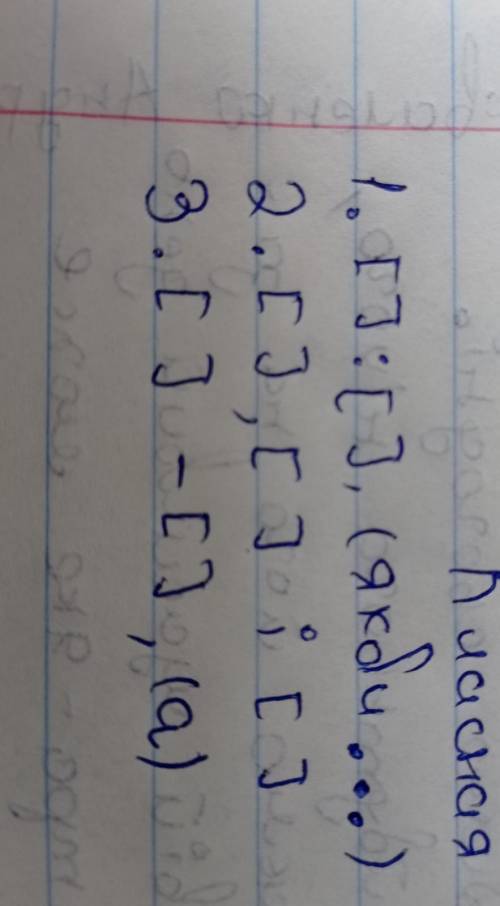 Класная
1. [ ] : [ ], (якби...)
2. [ ], [ ] ; [ ]
3. [ ] – [ ], (а)